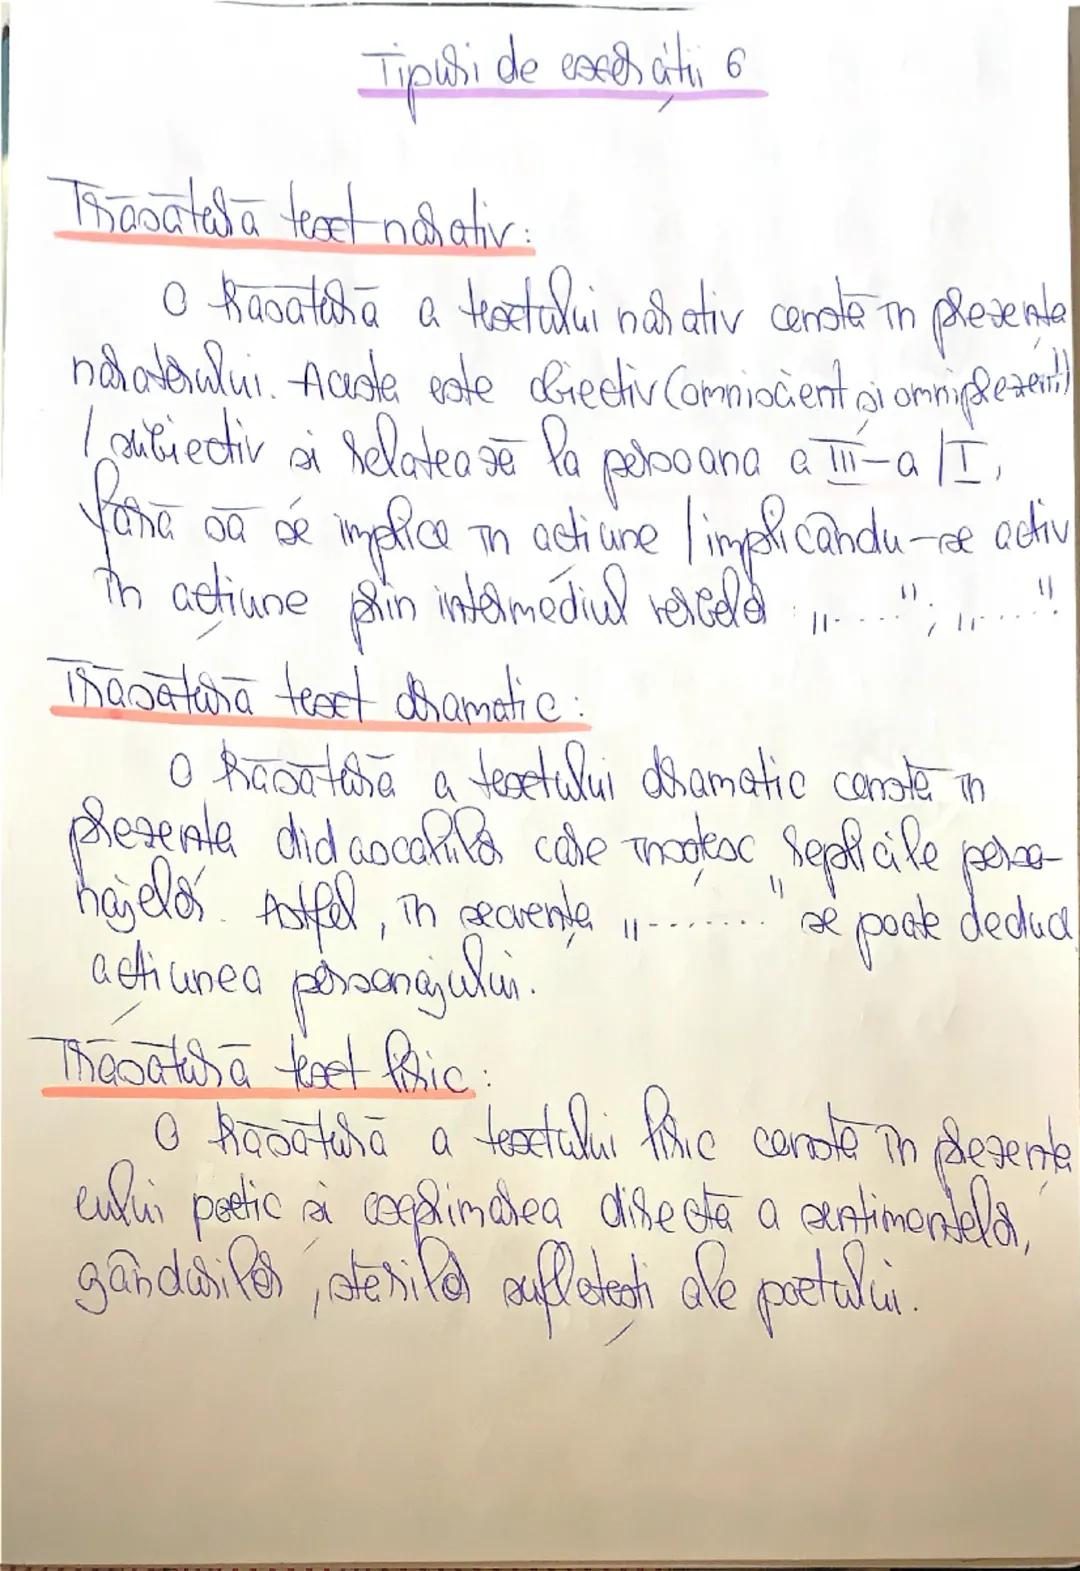 Tipuri de exerciții 6
Trăsătură text narativ:
O trăsătură a textului narativ constă în prezența
naratorului. Acesta este obiectiv (omniscient și omniprezent)
/ subiectiv și relatează la persoana a III-a / I,
fără să se implice în acțiune / implicându-se activ
în acțiune prin intermediul verbelor „......"; „......"
Trăsătură text dramatic:
O trăsătură a textului dramatic constă în
prezența didascaliilor care însoțesc replicile perso-
najelor. Astfel, în secvența „........" se poate deduce
acțiunea personajului.
Trăsătură text liric:
O trăsătură a textului liric constă în prezența
eului poetic și exprimarea directă a sentimentelor,
gândurilor, stărilor sufletești ale poetului.